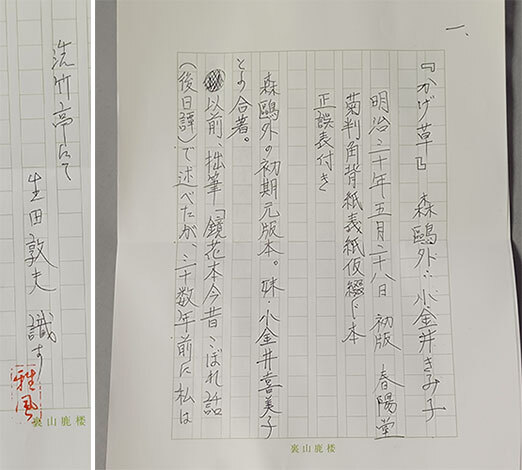 一、
『かげ草』 森鷗外・小金井きみ子
明治三十年五月二十八日 初版 春陽堂
菊判角背紙表紙仮綴じ本
正誤表付き
森鷗外の初期元版本。妹・小金井喜美子
との合著。
以前、拙筆「鏡花本今昔こぼれ話
(後日譚)で述べたが、二十数年前に私は
裏山鹿楼
洗竹亭にて
生田敦夫 識す
雅風
裏山鹿楼